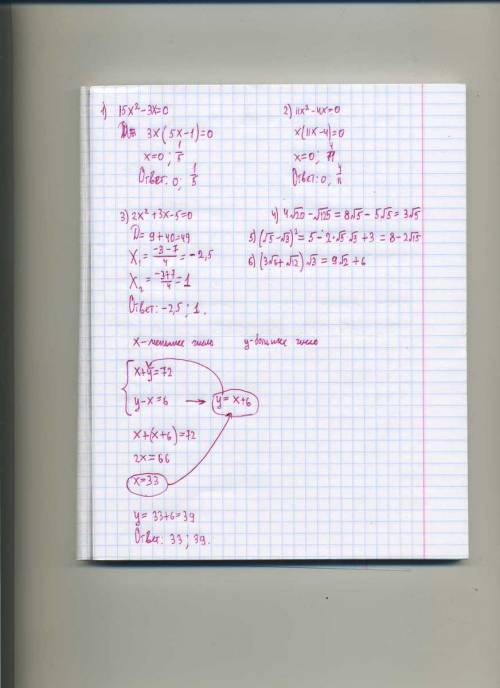 1) 15x² - 3x = 0
3x(5x-1)=0
x=0; 1/5
Ответ: 0; 1/5
2) 11x² - 4x = 0
x(11x-4)=0
x=0; 4/11
Ответ: 0; 4/11
3) 2x² + 3x - 5 = 0
D = 9 + 40 = 49
x₁ = (-3-7)/4 = -2,5
x₂ = (-3+7)/4 = 1
Ответ: -2,5; 1.
4) 4√20 - √125 = 8√5 - 5√5 = 3√5
5) (√5 - √3)² = 5 - 2·√5·√3 + 3 = 8 - 2√15
6) (3√6 + √12)·√3 = 9√2 + 6
x - меньшее число y - большее число
x+y=72
y-x=6 → y=x+6
x+(x+6)=72
2x=66
x=33
y=33+6=39
Ответ: 33; 39.